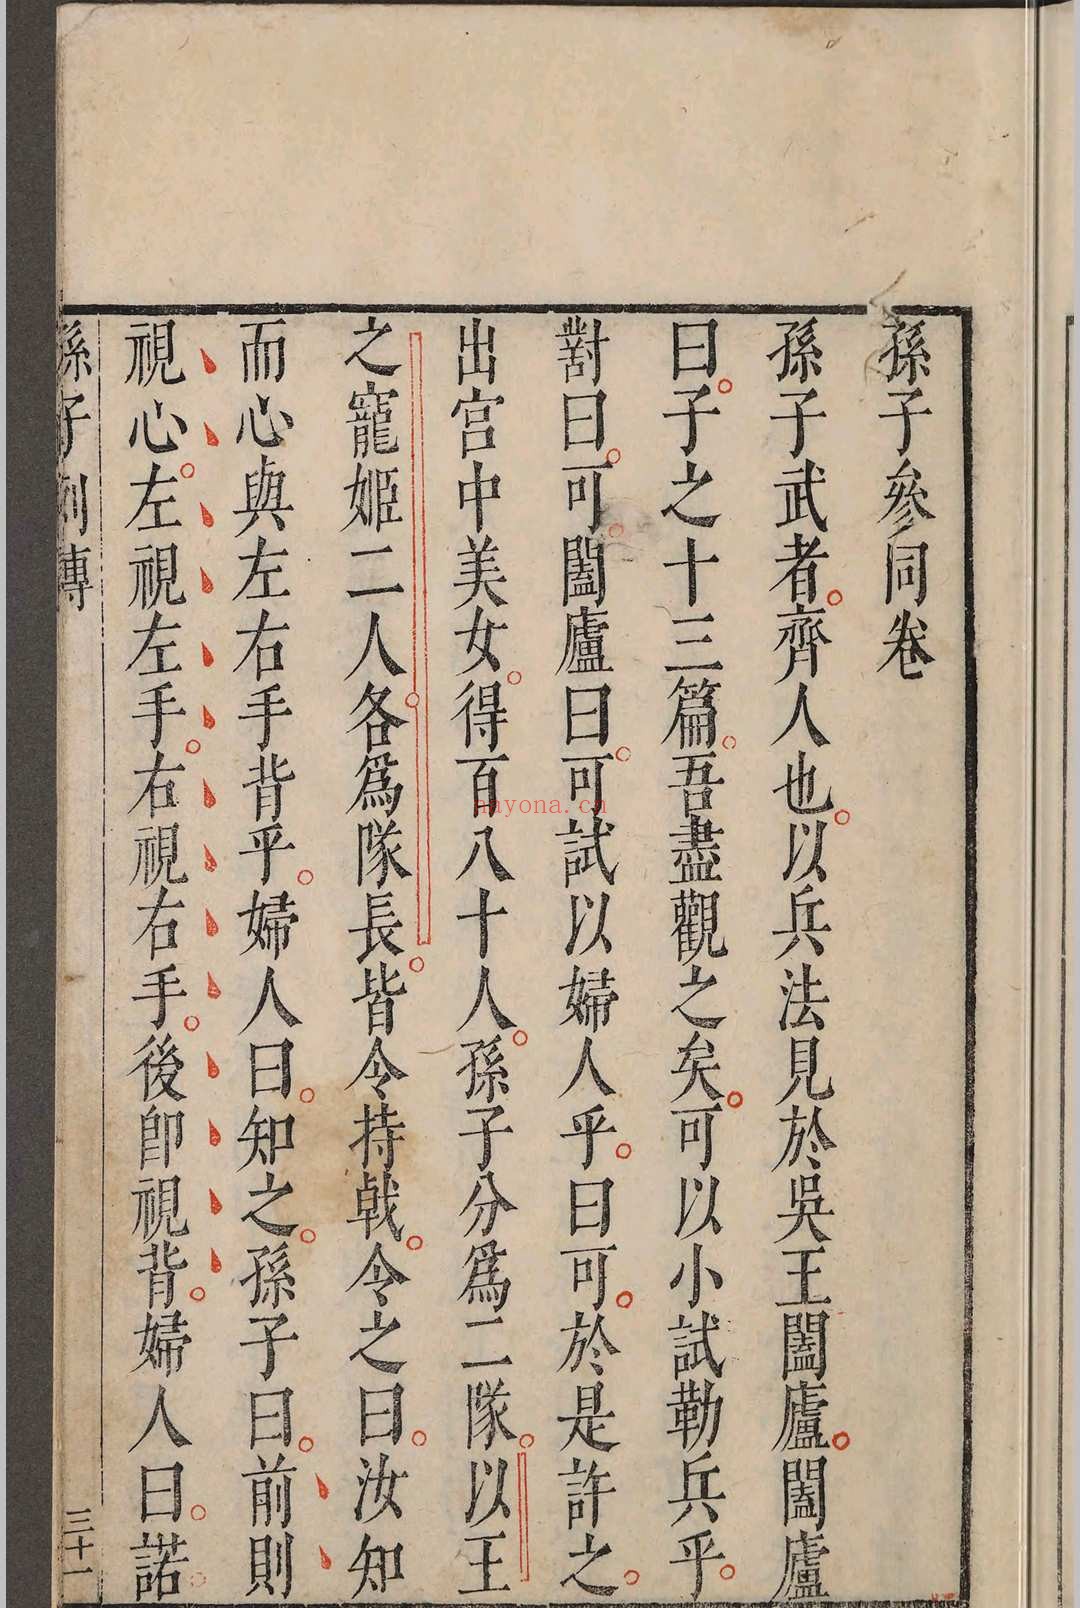 孫子參同卷
孫子武者齊人也以兵法見於吳王闔廬闔廬
曰子之十三篇吾盡觀之矣可以小試勒兵乎
對曰可闔廬曰可試以婦人乎曰可於是許之
出宮中美女得百八十人孫子分爲二隊以王
之寵姬二人各爲隊長皆令持戟令之曰汝知
而心與左右手背乎婦人曰知之孫子曰前則
視心左視左手右視右手後卽視背婦人曰諾
孫子列傳
三十一
nnyona.cn